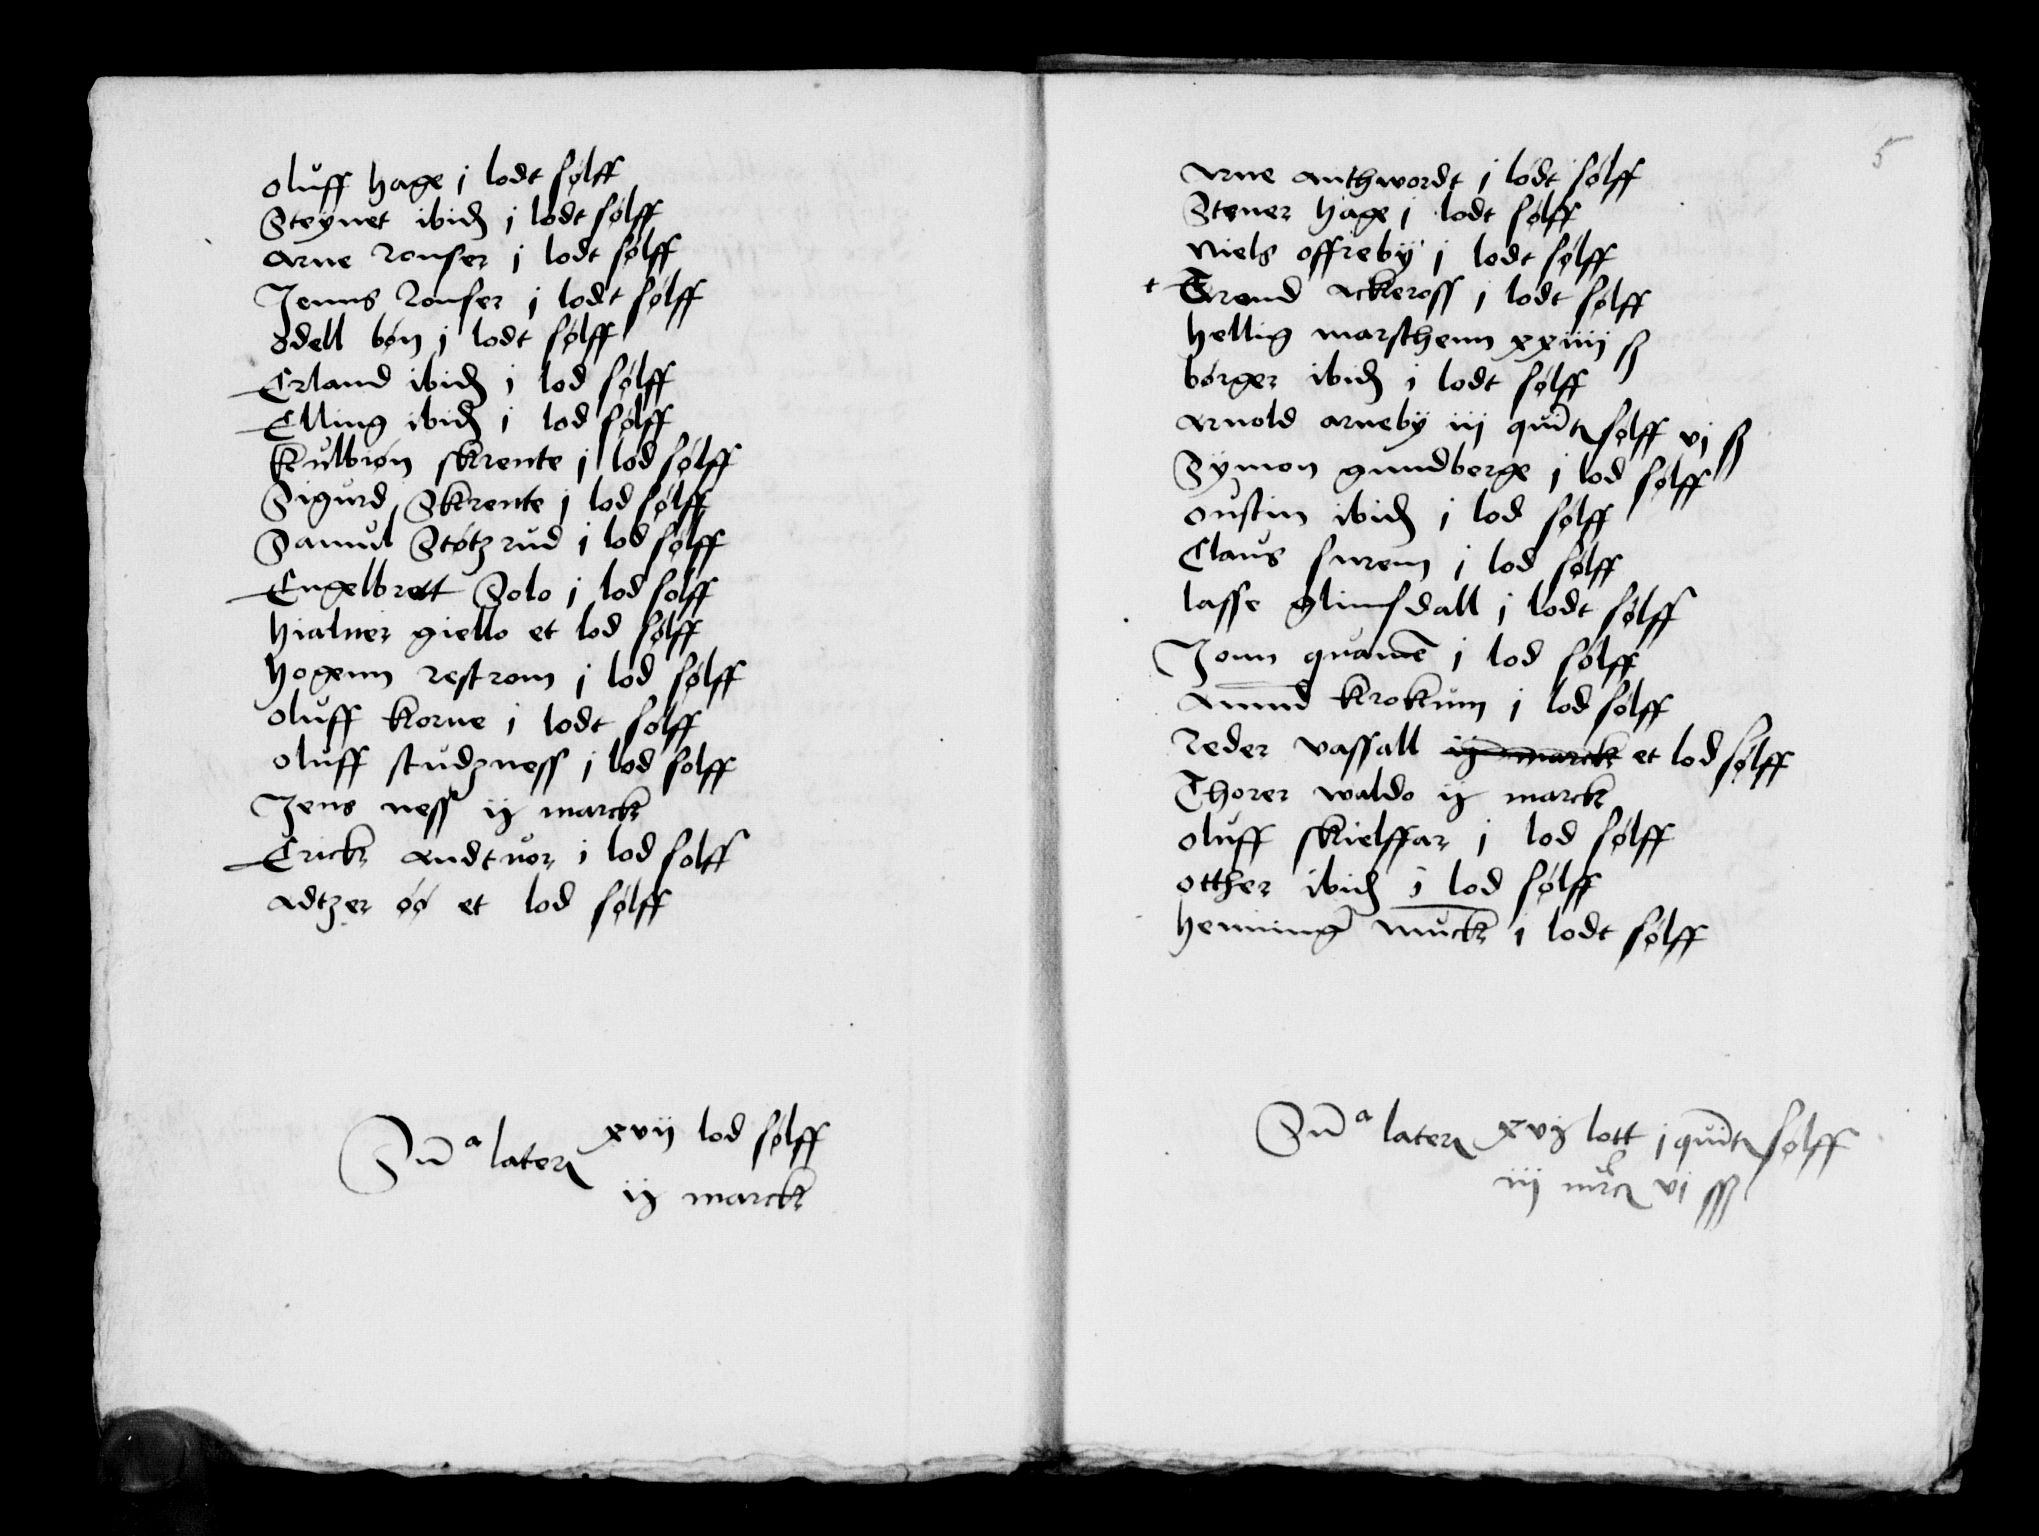 Oluff hage j lodt sølff
Steynet ibid j lodt sølff
Arne Ronser j lodt sølff
Jenns Ronser j lodt sølff
Odell bøn j lodt sølff
Erland ibid j lod sølff
Elling ibid j lod sølff
Kulbiøn skrente j lod sølff
Sigurd Skrente j lod sølff
Samul Støtzrud j lod sølff
Engelbrett Solo j lod sølff
hialuer giello et lod sølff
hogenn restrom j lod sølff
Oluff korne j lodt sølff
Oluff studzness j lod sølff
Jens ness ij marck
Erick andtuor j lod sølff
Adtzer øø et lod sølff
Sum̄a later xvij lod sølff
ij marck
5
Arne anthwordt j lødt sølff
Stener hage j lodt sølff
Niels offreby j lodt sølff
+ Trond Ackeross j lodt sølff
hellig marsthenn xxiiij ß
børger ibid j lodt sølff
Arnold arneby iij quīt sølff vj ß
Symon gundberge j lod sølff
Oustin ibid j lod sølff
Claus surem j lod sølff
lasse glimsdall j lodt sølff
Jonn quamē j lod sølff
Amund krokum j lod sølff
Reder vassall ij marck et lod sølff
Thorer waldo ij marck
Oluff skielffar j lod sølff
Otther ibid j lod sølff
henning muck j lodt sølff
Sum̄a later xvij lott j quīt sølff
iij mrc vj ß